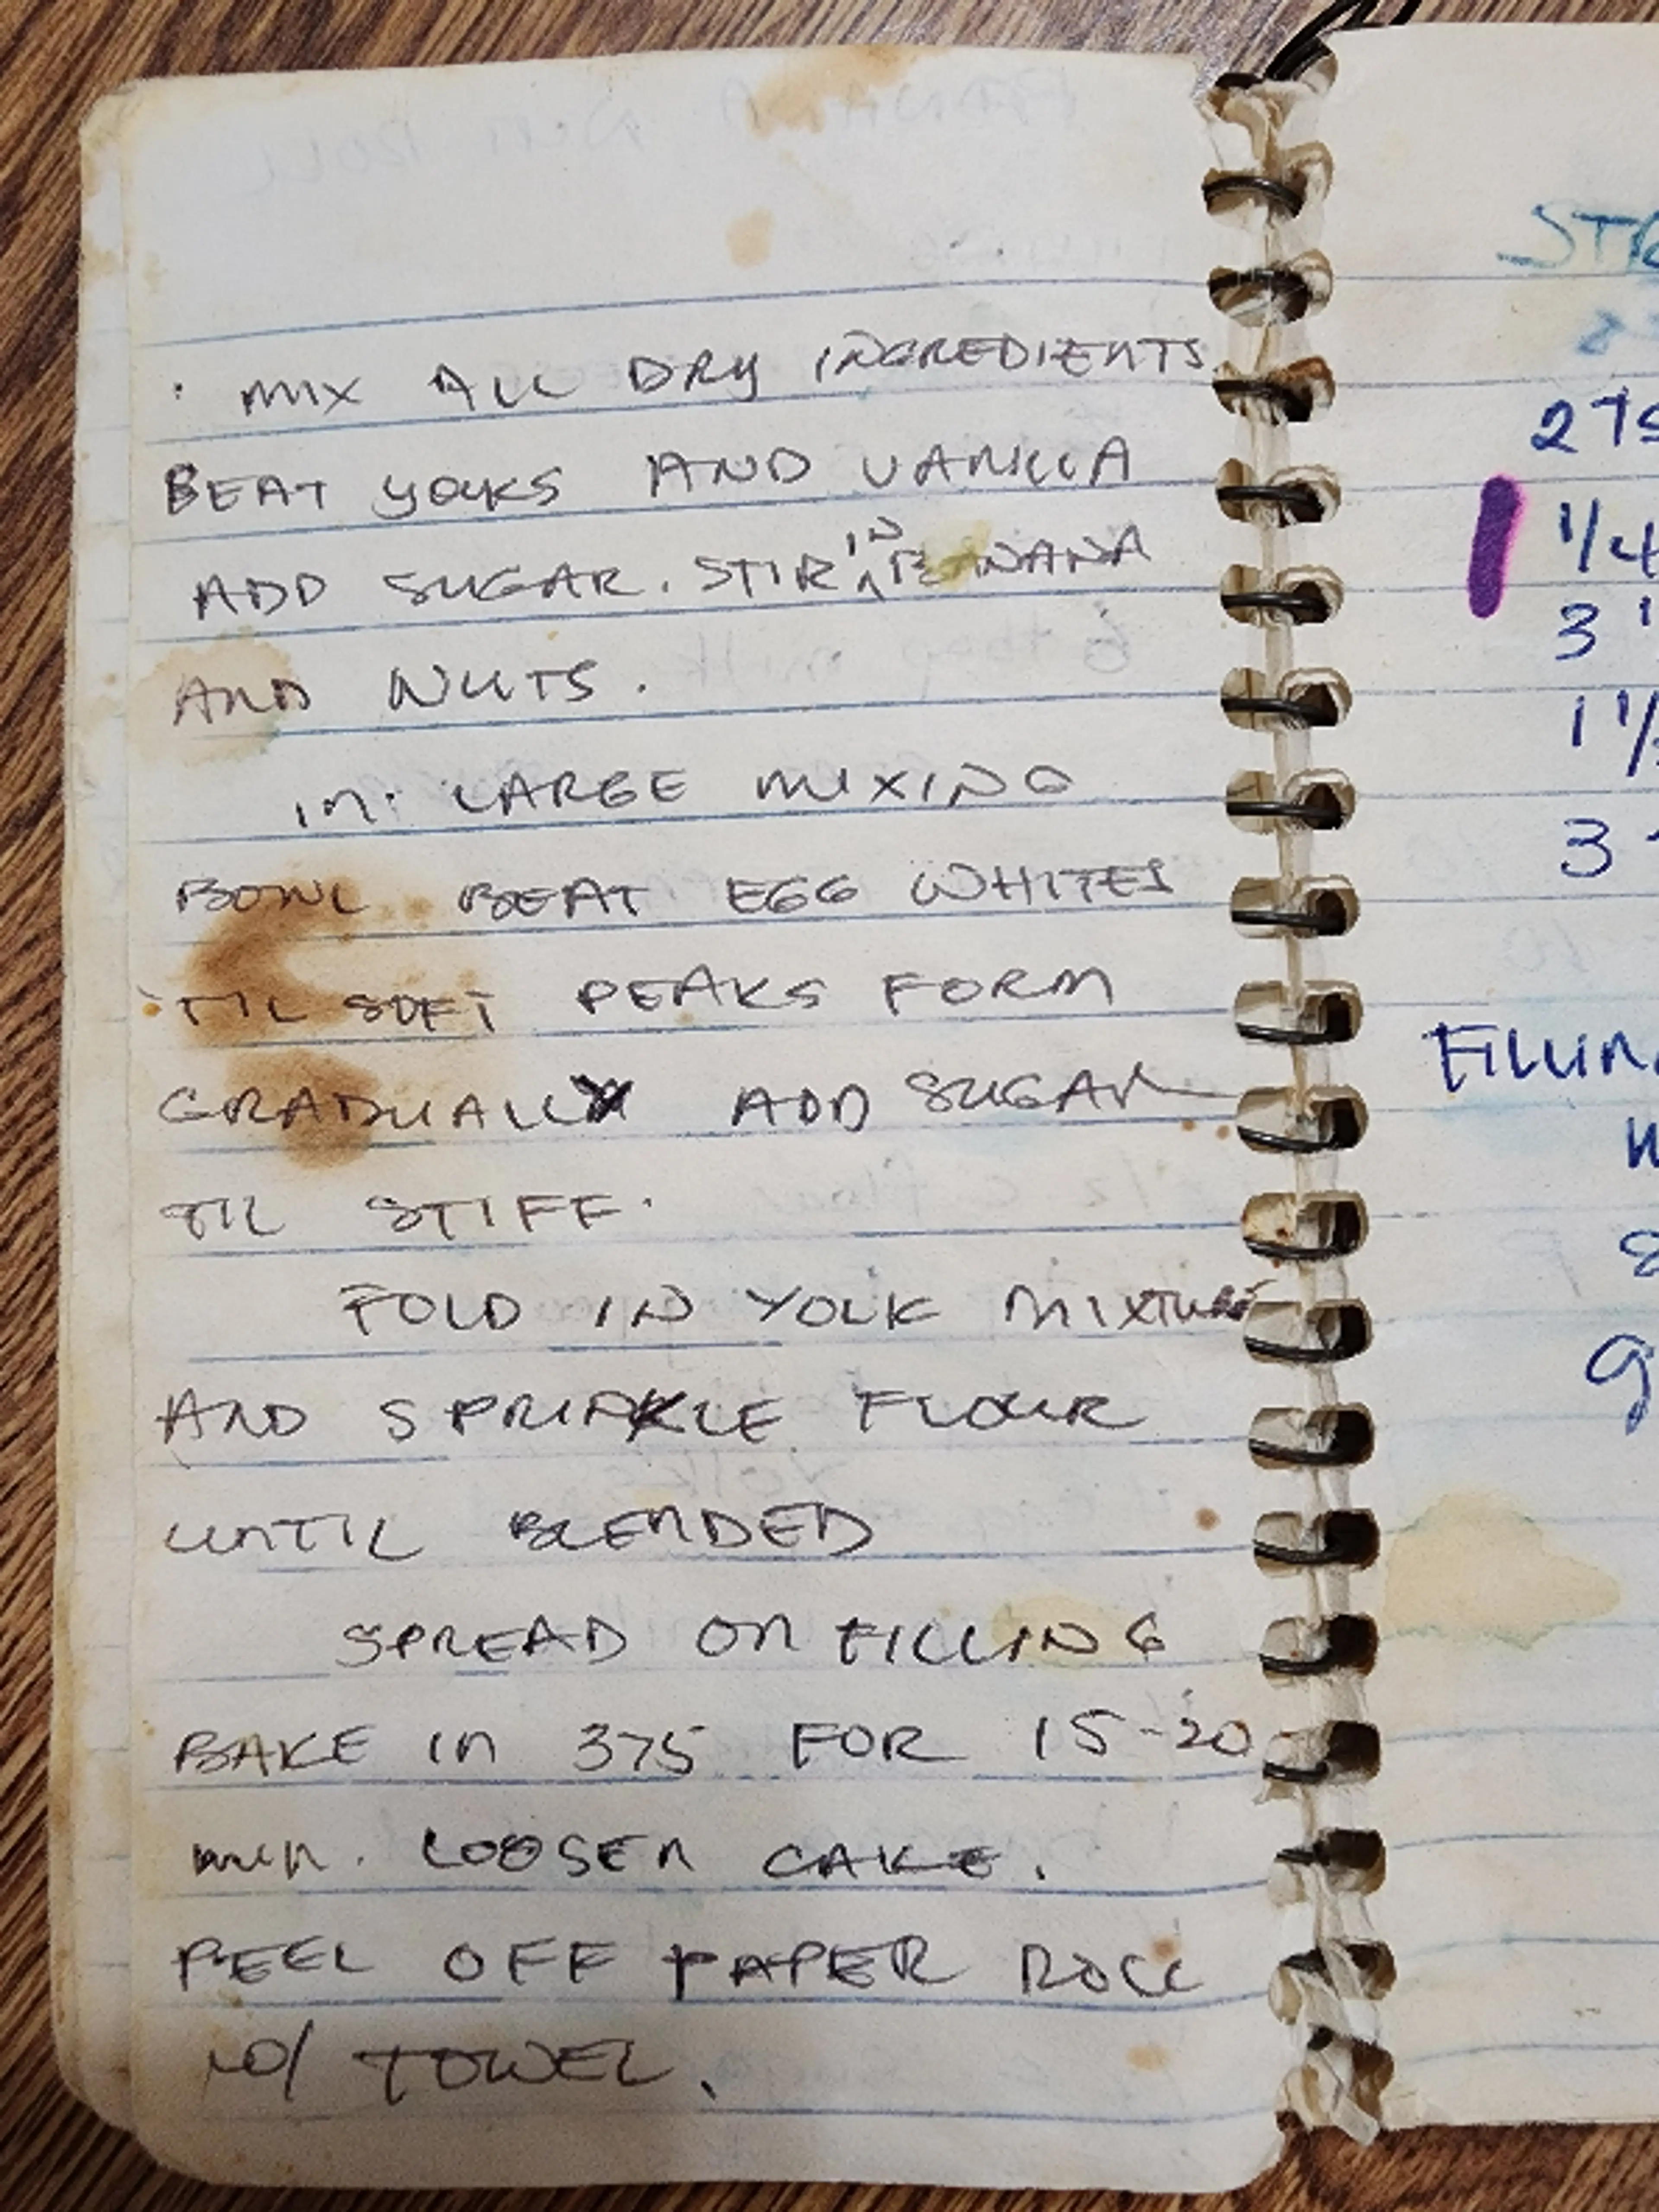 · MIX ALL DRY INGREDIENTS
BEAT YOLKS AND VANILLA
ADD SUGAR. STIR IN BANANA
AND NUTS.
IN LARGE MIXING
BOWL BEAT EGG WHITES
'TIL SOFT PEAKS FORM
GRADUALLY ADD SUGAR
TIL STIFF.
FOLD IN YOLK MIXTURE
AND SPRINKLE FLOUR
UNTIL BLENDED
SPREAD ON FILLING
BAKE IN 375 FOR 15-20
min. LOOSEN CAKE.
PEEL OFF PAPER ROLL
W/ TOWEL.
2
1/4
3
1 1/
3
FILLIN